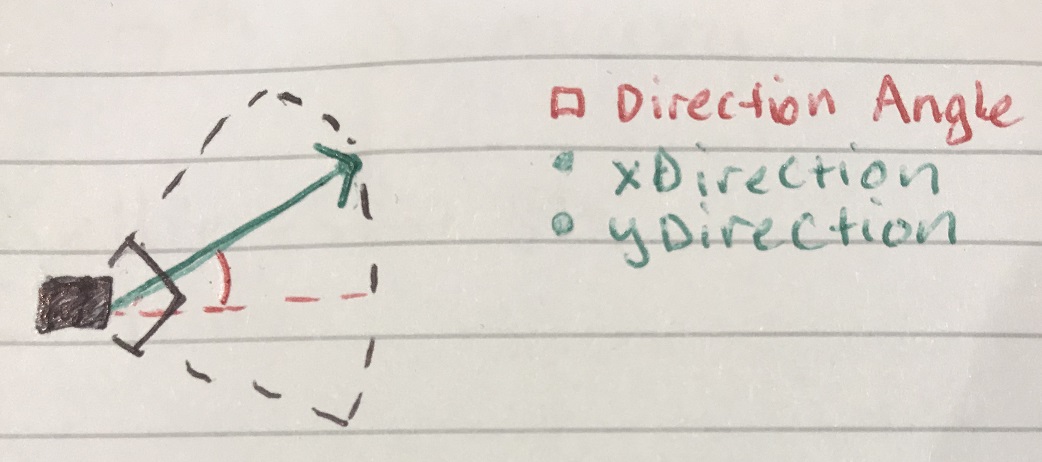 Direction Angle
xDirection
yDirection